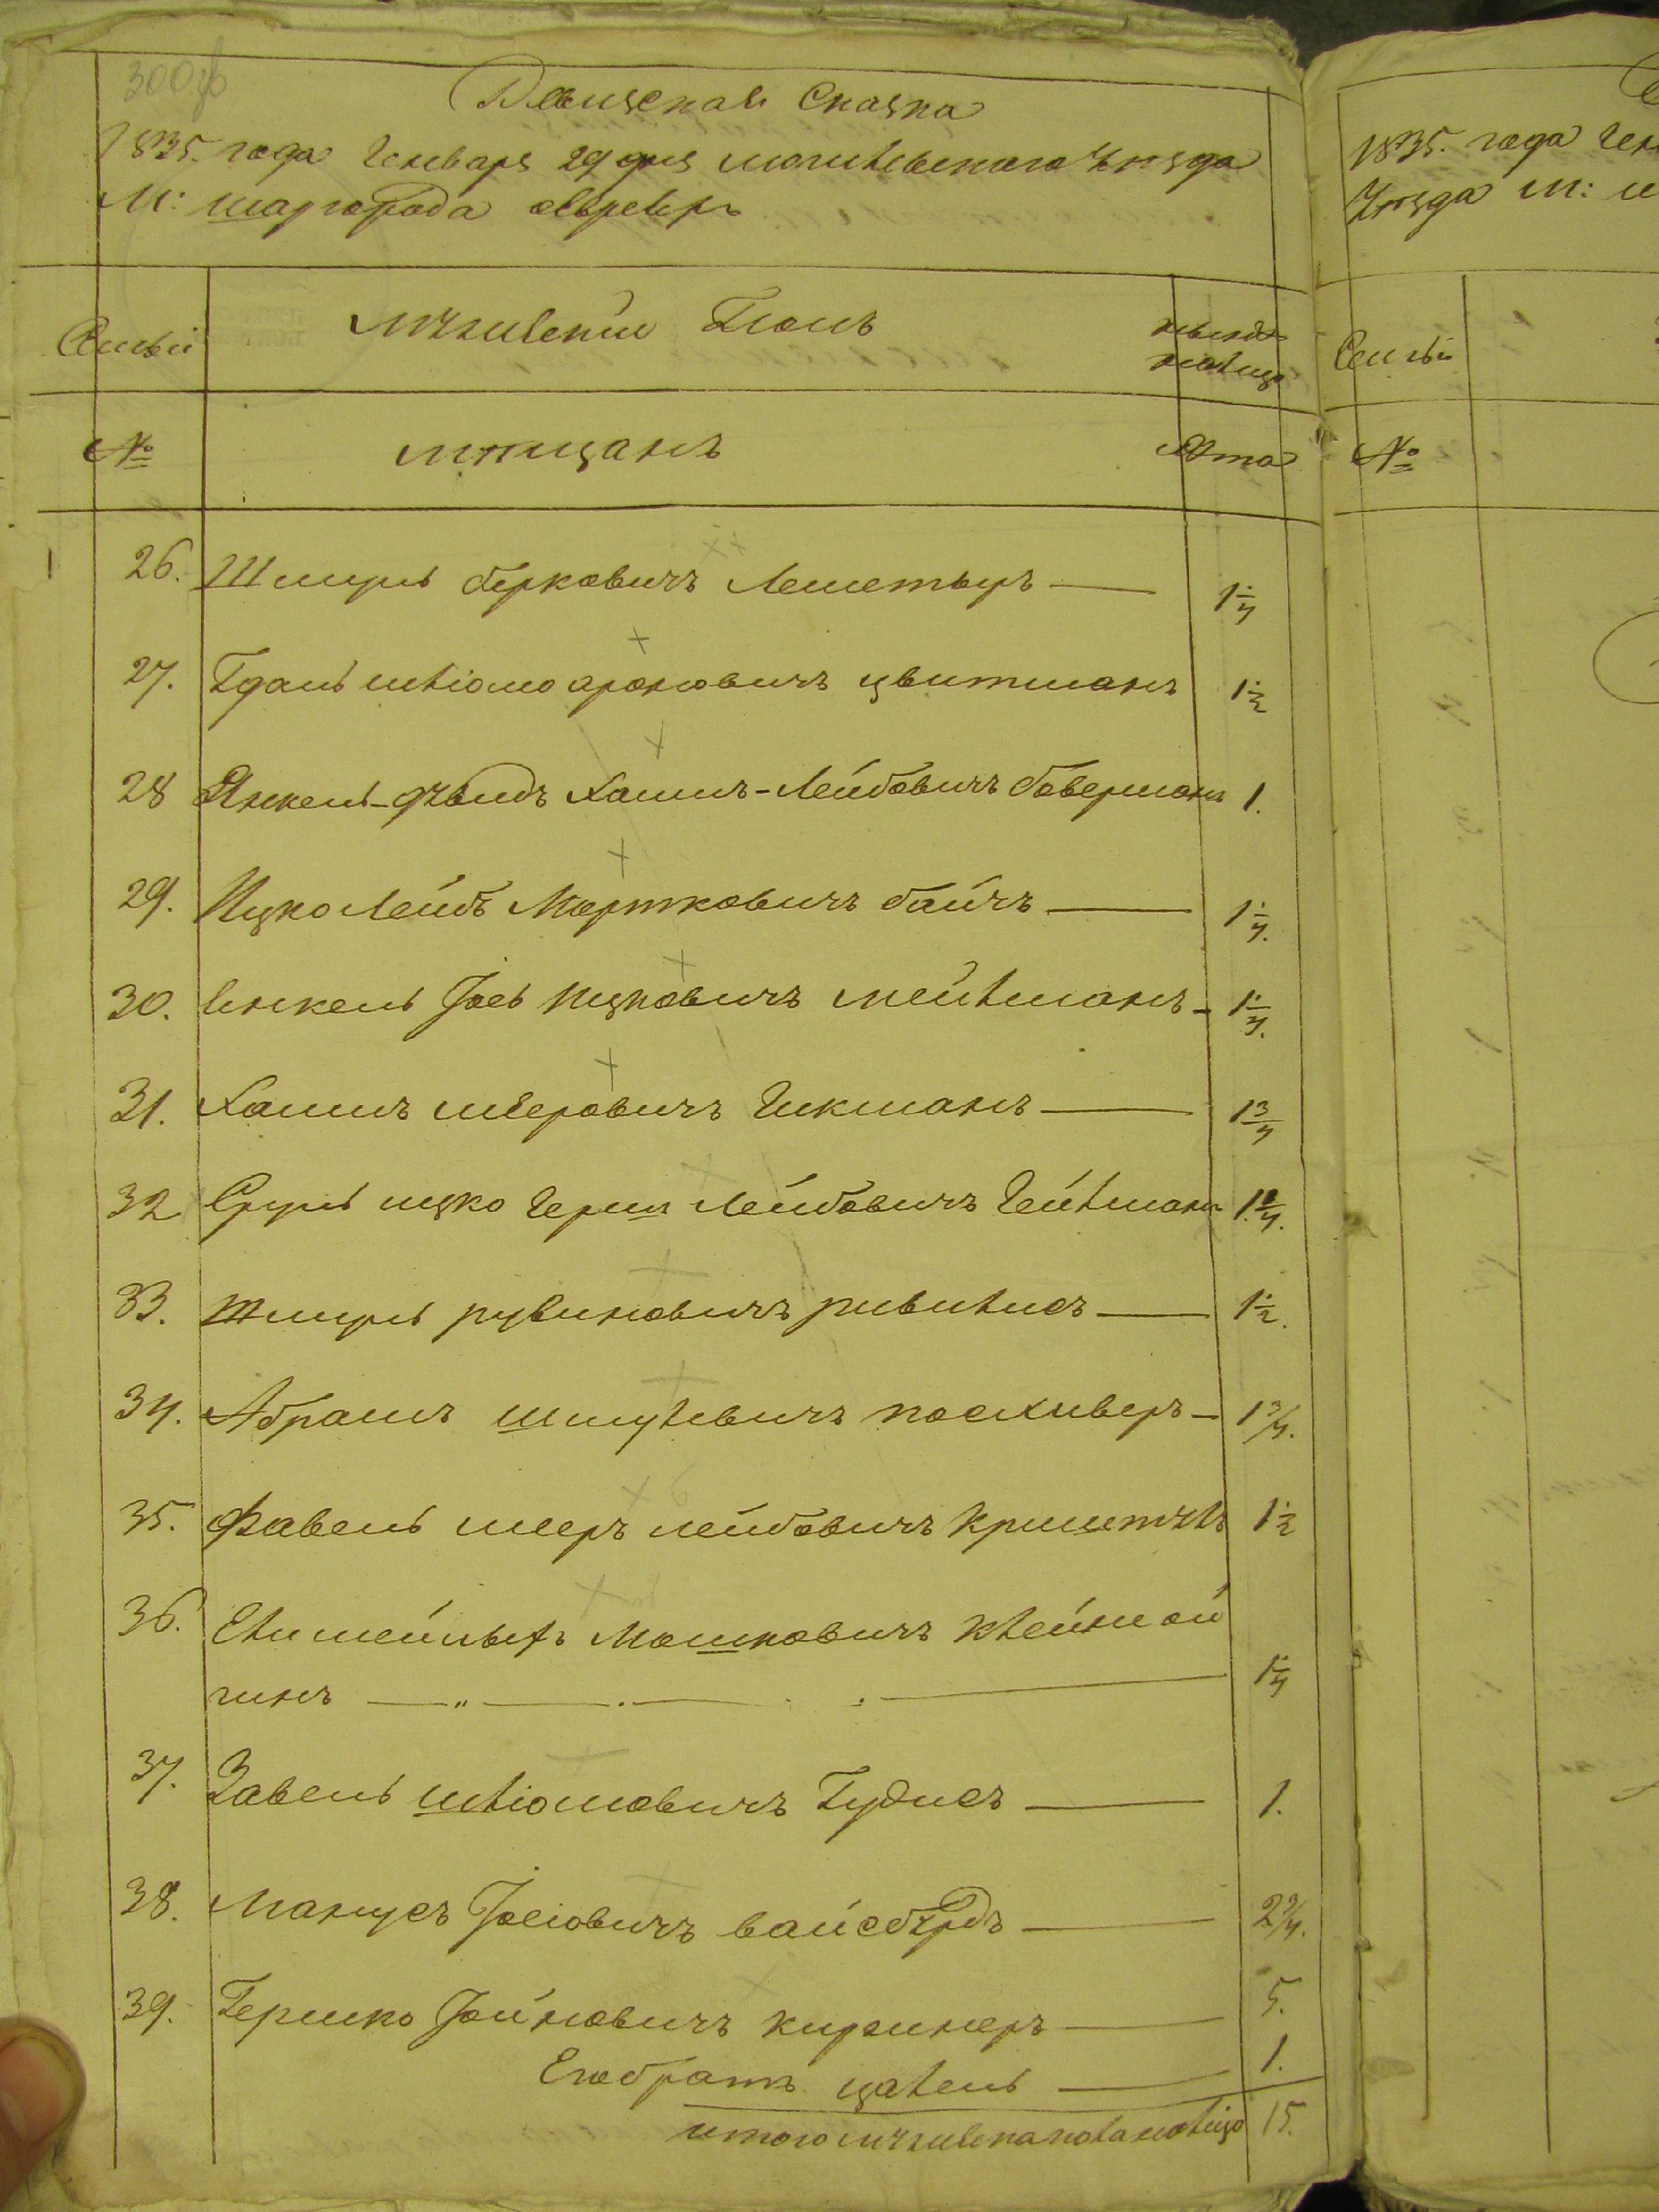 300об
Ревизская Сказка
1835. года Генваря 29 дня могилевского Уѣзда
М: шаргорода евреевъ
Семьи
мужескій Полъ
налицо
№
мѣщанъ
Лѣта
26. Шмуль берковичъ 1 1/4
27. Гдаль шліомо ароновичъ цвитманъ 1 1/2
28 Янкель-дувидъ Хаимъ-Лейбовичъ боверманъ 1.
29. Ицко Лейбъ Мортковичъ байчъ 1 1/4.
30. Янкель Іось Ицковичъ мейлманъ 1 1/4.
31. Хаимъ мееровичъ Гикманъ 1 3/4
32 Сруль ицко Герш Лейбовичъ Гейлманъ
33. Шмуль рувиновичъ ривилисъ 1 1/2.
34. Абрамъ шмулевичъ посхиверъ 1 3/4.
35. Фавель мееръ лейбовичъ 1 1/2
36. Мошковичъ клейной
гинъ 1 1/4
37. Завель шліомовичъ Гудисъ 1.
38. Манусъ Іосіовичъ вайсбурдъ 2 3/4.
39. Гершко Іойновичъ киржнеръ 5.
Его братъ цалель 1.
итого мужеска пола налицо 15.
1835. года Ген
Уѣзда М: ш
Семьи
№